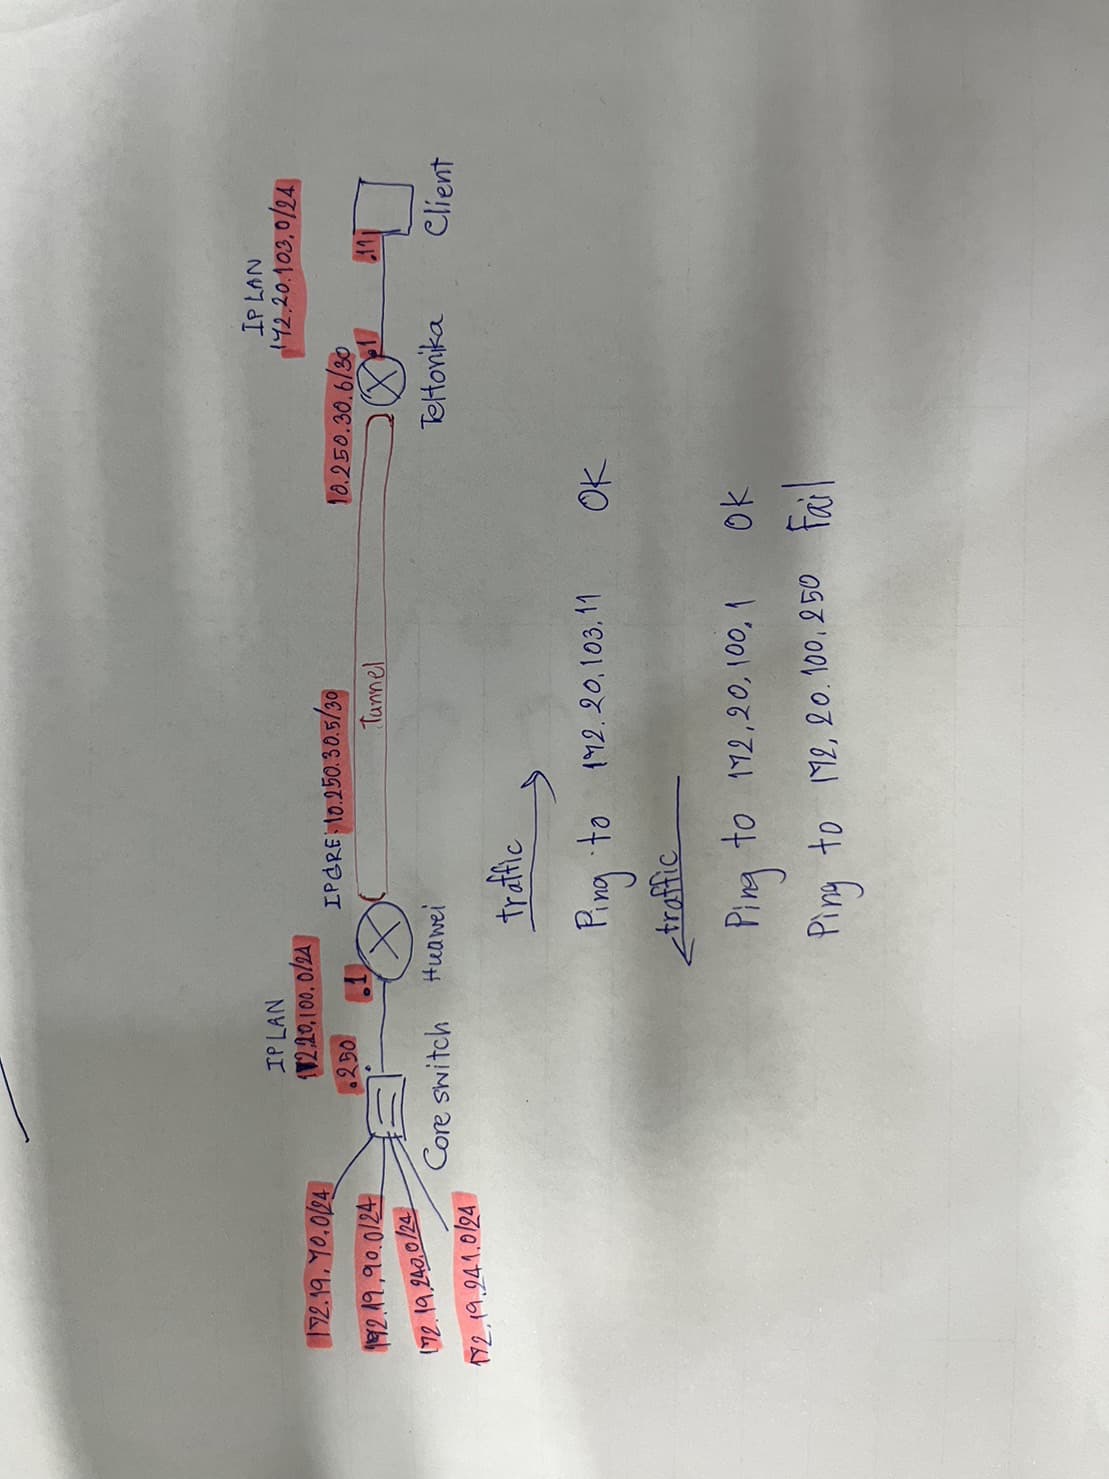 IP LAN
172.20.100.0/24
.250
.1
IP GRE: 10.250.30.5/30
10.250.30.6/30
IP LAN
172.20.103.0/24
.1
.11
Tunnel
172.19.70.0/24
172.19.90.0/24
172.19.240.0/24
172.19.241.0/24
Core switch
Huawei
Teltonika
Client
traffic
Ping to 172.20.103.11 OK
traffic
Ping to 172,20,100,1 OK
Ping to 172,20.100,250 Fail